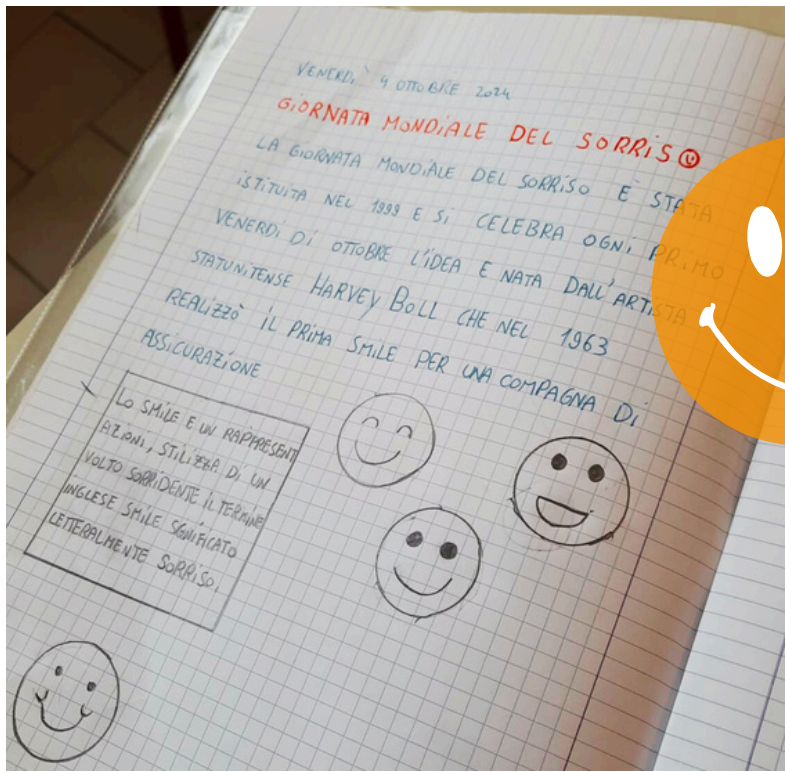 VENERDI` 4 OTTOBRE 2024
GIORNATA MONDIALE DEL SORRISO
LA GIORNATA MONDIALE DEL SORRISO E STATA
ISTITUITA NEL 1999 E SI CELEBRA OGNI PRIMO
VENERDI DI OTTOBRE L'IDEA E NATA DALL'ARTISTA
STATUNITENSE HARVEY BOLL CHE NEL 1963
REALIZZÒ IL PRIMA SMILE PER UNA COMPAGNA DI
ASSICURAZIONE
LO SMILE E UN RAPPRESENT
AZIONI, STILIZZA DI UN
VOLTO SORRIDENTE IL TERMINE
INGLESE SMILE SGNIFICATO
LETTERALMENTE SORRISO.